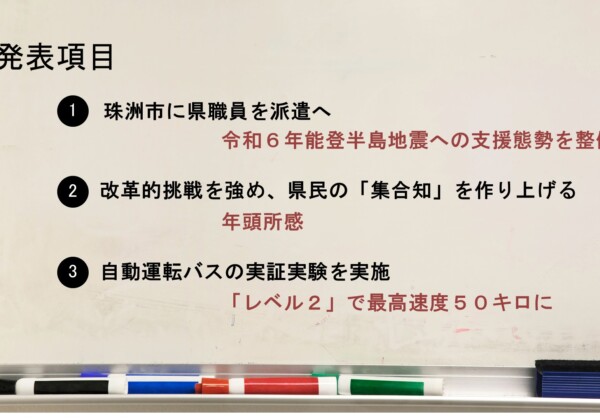 発表項目
1 珠洲市に県職員を派遣へ
令和６年能登半島地震への支援態勢を整
2 改革的挑戦を強め、県民の「集合知」を作り上げる
年頭所感
3 自動運転バスの実証実験を実施
「レベル２」で最高速度５０キロに